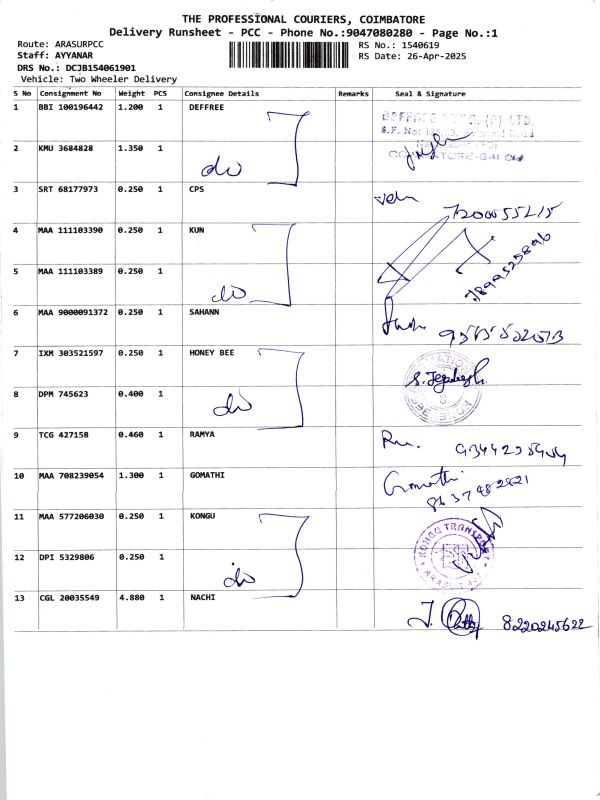 THE PROFESSIONAL COURIERS, COIMBATORE
Delivery Runsheet - PCC - Phone No.:9047080280 - Page No.:1
Route: ARASURPCC
RS No.: 1540619
Staff: AYYANAR
RS Date: 26-Apr-2025
DRS No.: DCJB154061901
Vehicle: Two Wheeler Delivery
S No Consignment No Weight PCS Consignee Details Remarks Seal & Signature
1 BBI 100196442 1.200 1 DEFFREE
2 KMU 3684828 1.350 1 do
3 SRT 68177973 0.250 1 CPS
4 MAA 111103390 0.250 1 KUN
5 MAA 111103389 0.250 1 do
6 MAA 9000091372 0.250 1 SAHANN
7 IXM 303521597 0.250 1 HONEY BEE
8 DPM 745623 0.400 1 do
9 TCG 427158 0.460 1 RAMYA
10 MAA 708239054 1.300 1 GOMATHI Gomathi
11 MAA 577206030 0.250 1 KONGU KONGU TRANSPORT
12 DPI 5329806 0.250 1 do
13 CGL 20035549 4.880 1 NACHI 8220245622